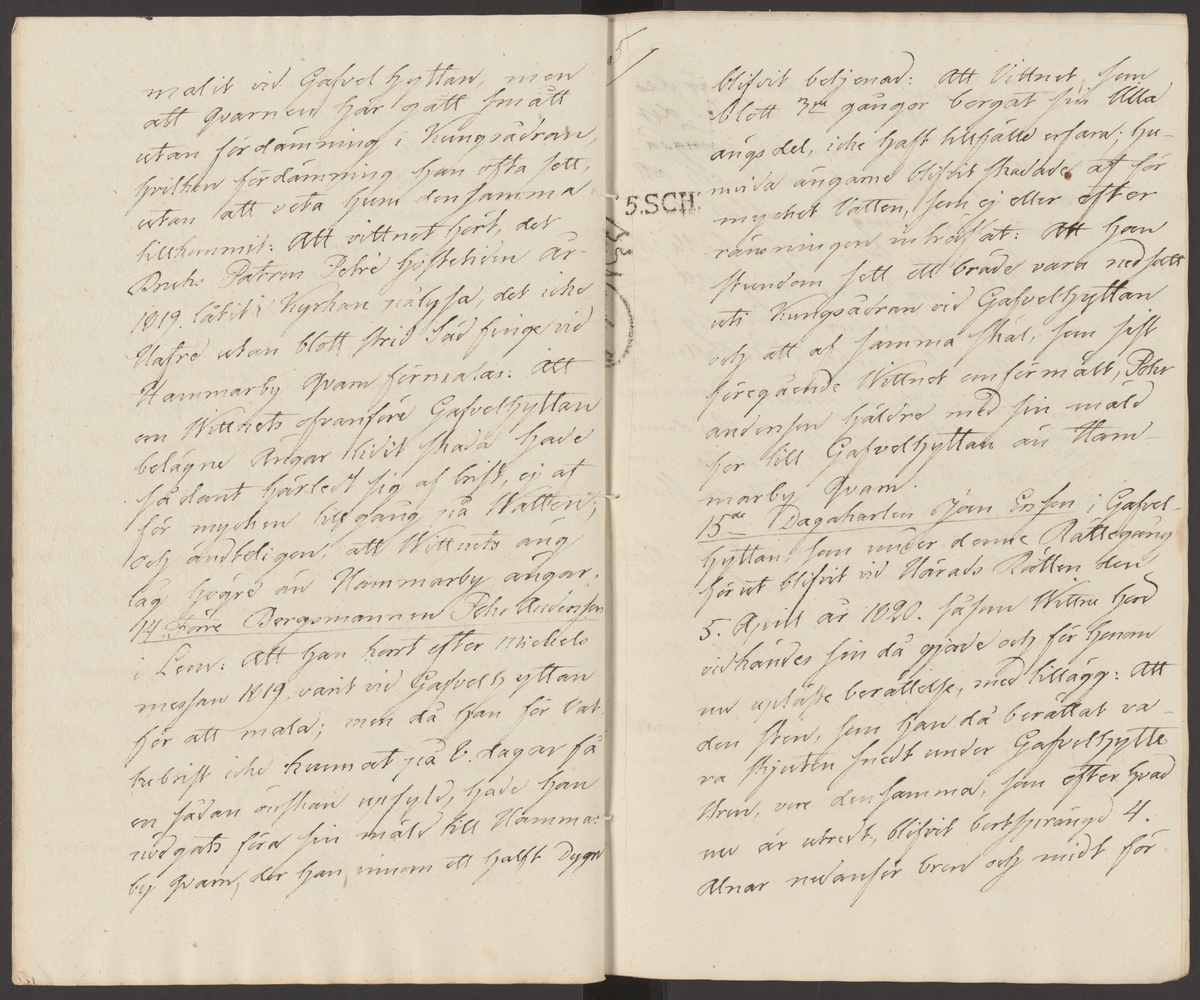 malit vid Gafvelhyttan, men
att qvarnen har gått smått
utan fördämning i Kungsådran,
hvilken fördämning han ofta sett,
utan att veta huru densamma
tillkommit: Att vittnet hört, det
Bruks Patron Petré hösttiden år
1819. låtit i Kyrkan pålysa, det icke
Hafre utan blott strid Säd finge vid
Hammarby Qvarn förmalas: Att
om Wittnets ofvanföre Gafvelhyttan
belägne Ängar lidit skada hade
sådant härledt sig af brist, ej af
för mycken tillgång på Watten;
och ändteligen, att Wittnets äng
låg högre än Hammarby ängar.
14. Förre Bergsmannen Pehr Andersson
i Lem: Att han kort efter Mickels
messan 1819. varit vid Gafvelhyttan
för att mala; men då han för Vat
tubrist icke kunnat på 8. dagar få
en sådan önskan upfyld, hade han
nödgats föra sin mäld till Hammar
by Qvarn, der han innom ett halft Dygn
5
blifvit betjenad: Att Vittnet, som
blott 3ne gångor bergat sin Illa
ängsdel, icke haft tillfälle erfara, hu-
ruvida ängarne blifvit skadade af för
mycket Vatten, som ej eller efter
ränsningen inträffat: Att han
stundom sett ett bräde vara nedsatt
uti Kungsådran vid Gafvelhyttan
och att af samma skäl, som sist
föregående Wittnet omförmält, Pehr
andersson häldre med sin mäld
for till Gafvelhyttan än Ham-
marby Qvarn.
15de Dagakarlen Jöan Ersson i Gafvel-
hyttan, som under denne Rättegång
förut blifvit vid Härads Rätten den
5. April år 1820. såsom Wittne hörd
vidkändes sin då gjorde och för honom
nu upläste berättelse, med tillägg: Att
den sten, som han då berättat va-
ra skjuten snedt under Gafvelhytte
Bron, vore densamma, som efter hvad
nu är utredt, blifvit bortsprängd 4.
Alnar nedanför bron och midt för
5.SCH.